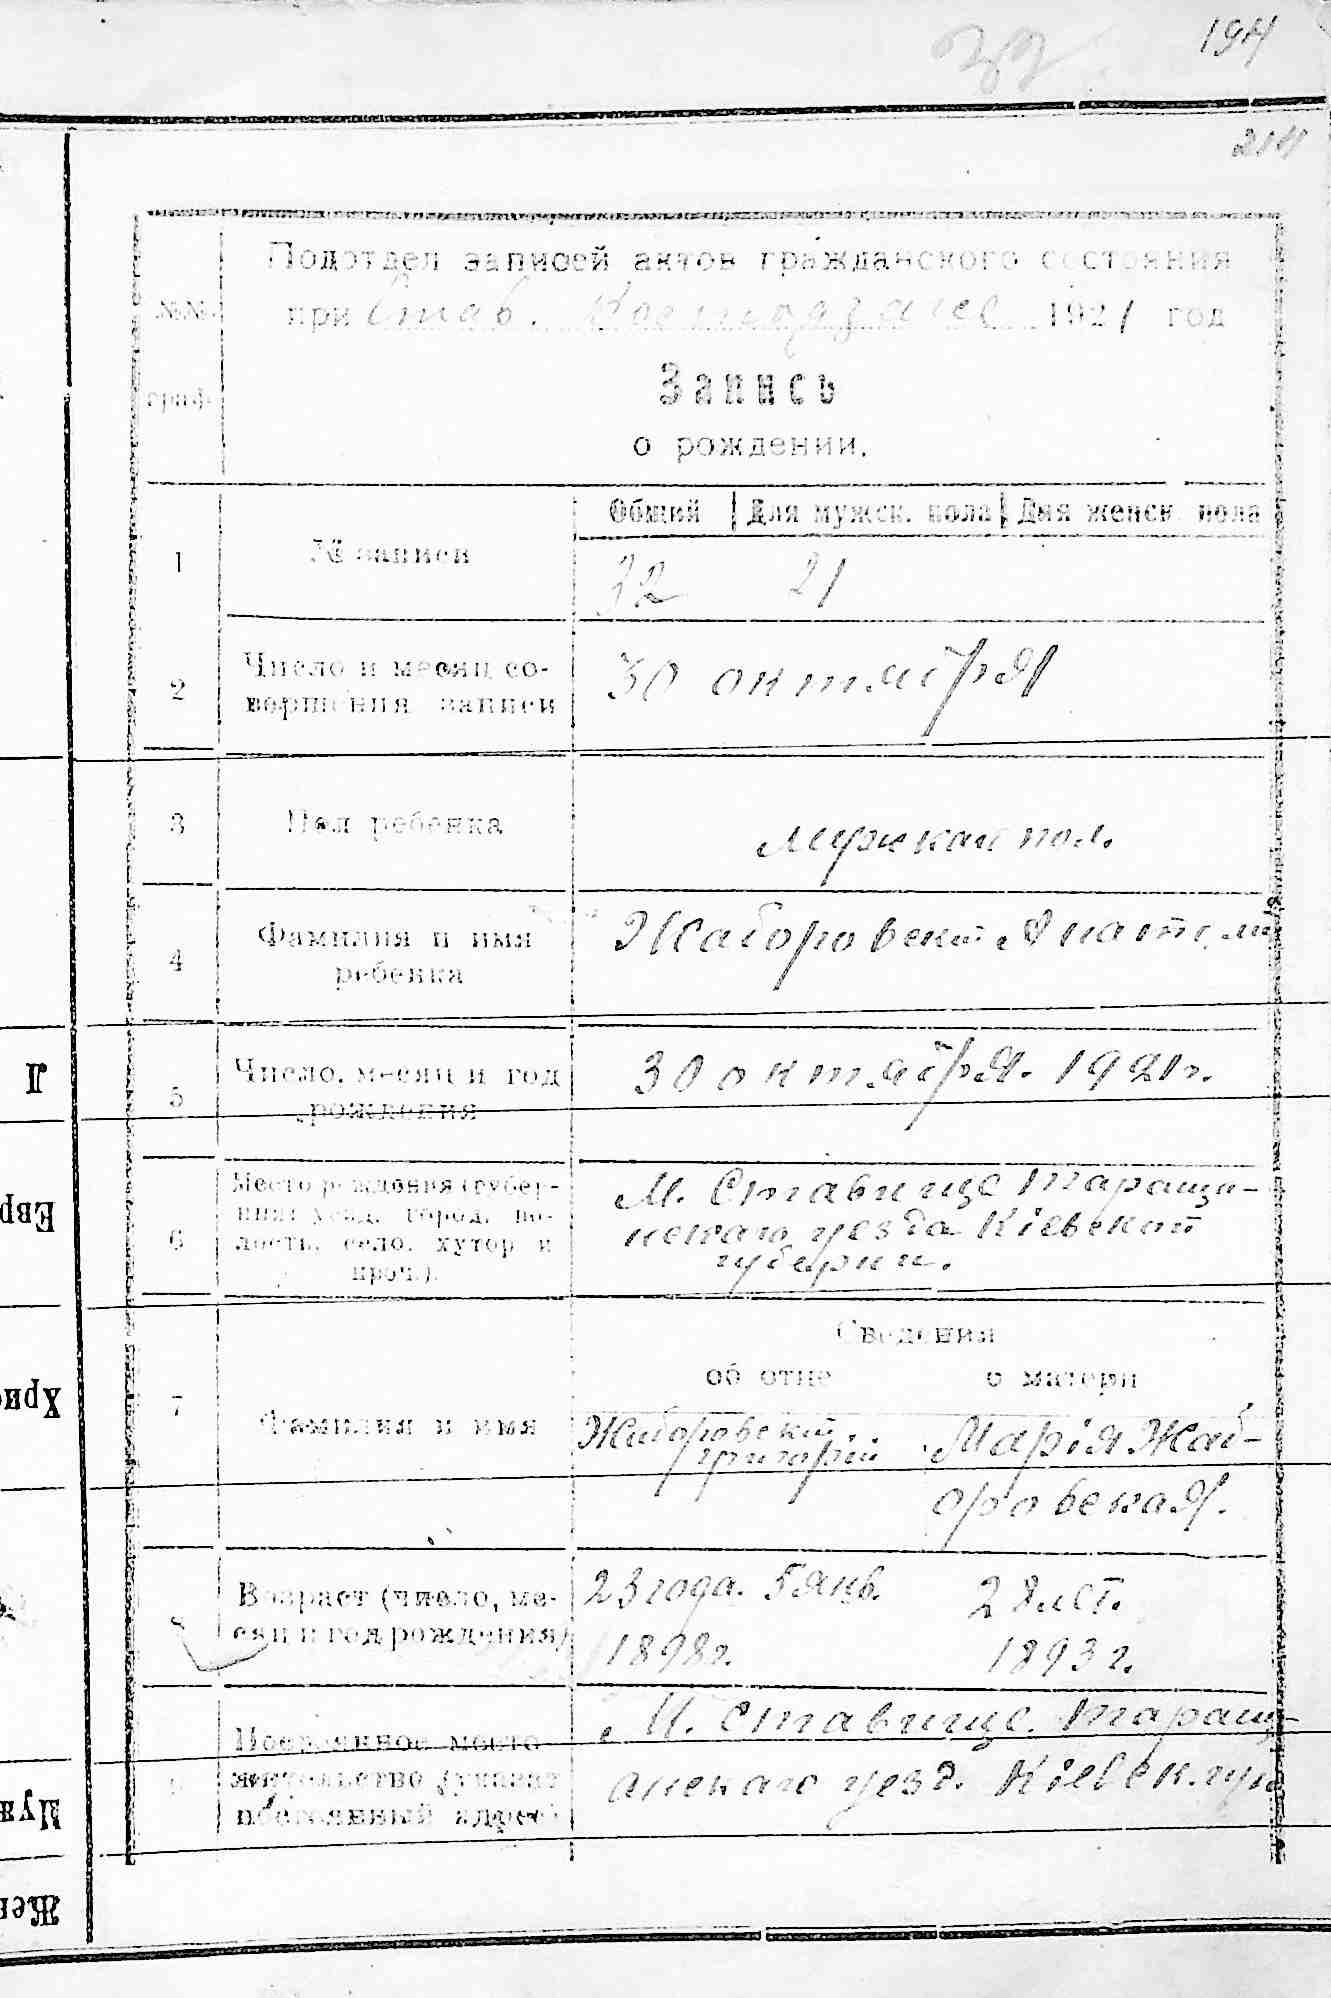 194
32
214
№№ граф.
Подотдел записей актов гражданского состояния
при Став. 1921 год
Запись
о рождении.
Общий Для мужск. пола Для женск. пола
1 № записи 32 21
2 Число и месяц со-
вершения записи 30 октября
3 Пол ребенка мужской пол.
4 Фамилия и имя
ребенка Жаборовский Анатолий
5 Число, месяц и год
рождения 30 октября 1921 г.
6 Место рождения (губер-
ния, уезд, город, во-
лость, село, хутор и
проч.).
М. Ставище Таращи-
нскаго уезда Кіевской
губернии.
Сведения
об отце о матери
7 Фамилия и имя
Жаборовский
Григорій
Марія Жаб-
оровская.
8 Возраст (число, ме-
сяц и год рождения)
23 года. 5 янв.
1898 г.
28 лет.
1893 г.
Постоянное место-
жительство (указат
постоянный адрес)
М. Ставище. Таращ-
анскаго уезд. Кіевск. губ
Л
Евр
Хрис
Муж
Жен